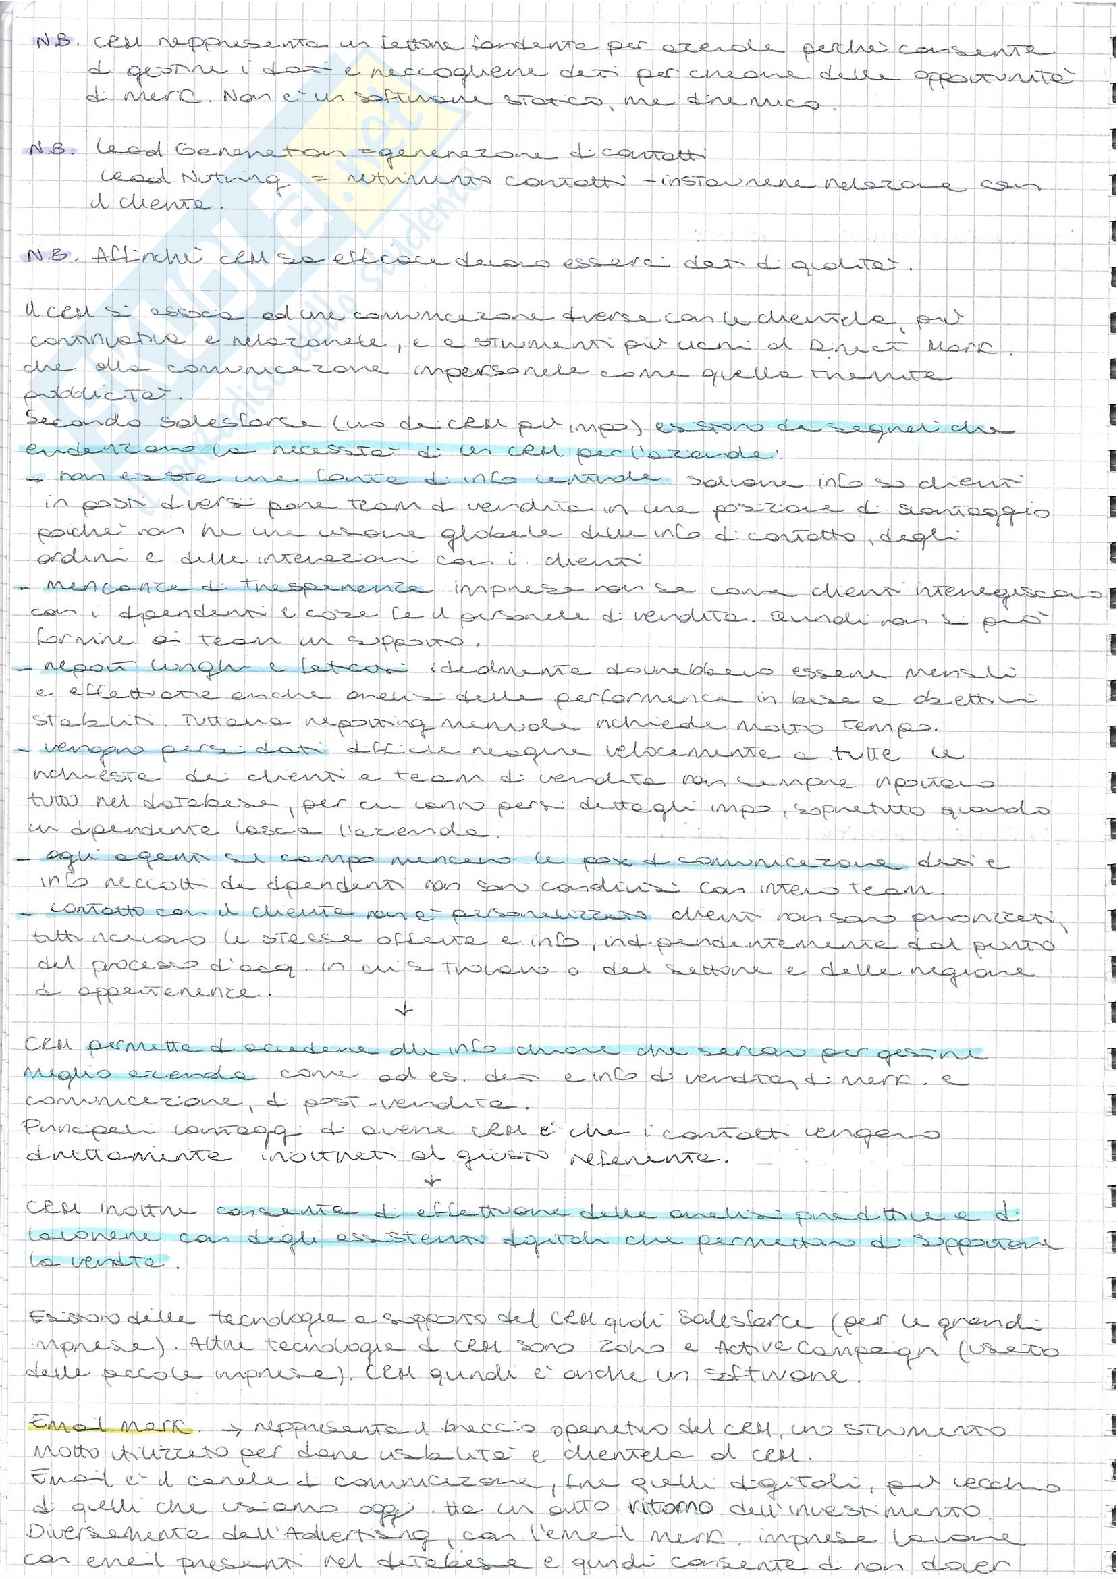 N.B. CRM rappresenta un fattore fondante per aziende perché consente
di gestire i dati e raccogliere dati per creare delle opportunità
di mark. Non è un software statico, ma dinamico.
N.B. Lead Generation = generazione di contatti
Lead Nutring = nutrimento contatti - instaurare relazione con
il cliente.
N.B. Affinché CRM sia efficace devono esserci dati di qualità.
Il CRM si associa ad una comunicazione diversa con la clientela, più
continuativa e relazionale, e a strumenti più vicini al Direct Mark.
che alla comunicazione impersonale come quella tramite
pubblicità.
Secondo Salesforce (uno dei CRM più impo) esistono dei segnali che
evidenziano la necessità di un CRM per l'azienda:
- non esiste una fonte di info centrale salvare info su clienti
in posti diversi pone team di vendita in una posizione di svantaggio
poiché non ha una visione globale delle info di contatto, degli
ordini e delle interazioni con i clienti
- mancanza di trasparenza impresa non sa come clienti interagiscono
con i dipendenti e cosa fa il personale di vendita. Quindi non si può
fornire ai team un supporto.
- report lunghi e faticosi idealmente dovrebbero essere mensili
e effettuare anche analisi delle performance in base a obiettivi
stabiliti. Tuttavia reporting manuale richiede molto tempo.
- vengono persi dati difficile reagire velocemente a tutte le
richieste dei clienti e team di vendita non sempre riportano
tutto nel database, per cui vanno persi dettagli impo, soprattutto quando
un dipendente lascia l'azienda.
- agli agenti sul campo mancano le poss di comunicazione dati e
info raccolti da dipendenti non sono condivisi con intero team
- contatto con il cliente non è personalizzato clienti non sono
tutti ricevono le stesse offerte e info, indipendentemente dal punto
del processo d'acq. in cui si trovano o del settore e della regione
di appartenenza.
↓
CRM permette di accedere alle info chiave che servono per gestire
meglio azienda come ad es. dati e info di vendita, di mark. e
comunicazione, di post-vendita.
Principali vantaggi di avere CRM è che i contatti vengano
direttamente inoltrati al giusto referente.
↓
CRM inoltre consente di effettuare delle analisi predittive e di
lavorare con degli assistenti digitali che permettano di supportare
la vendita.
Esistono delle tecnologie a supporto del CRM quali Salesforce (per le grandi
imprese). Altre tecnologie di CRM sono Zoho e Active Campaign (usato
delle piccole imprese). CRM quindi è anche un software.
Email Mark. → rappresenta il braccio operativo del CRM, uno strumento
molto utilizzato per dare usabilità e clientela al CRM.
Email è il canale di comunicazione, tra quelli digitali, più vecchio
di quelli che usiamo oggi. Ha un alto ritorno dell'investimento
Diversamente dall'Advertising, con l'email mark. imprese lavorano
con email presenti nel database e quindi consente di non dover